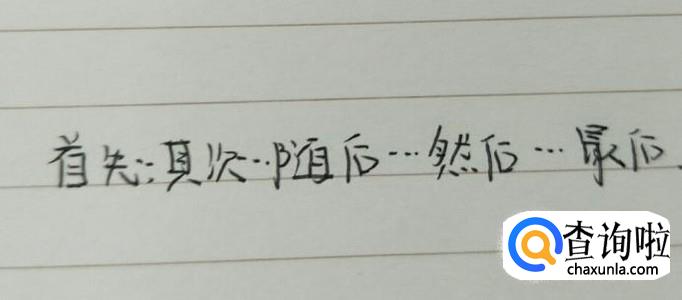 首先…其次…随后…然后…最后
查询啦
chaxunla.com